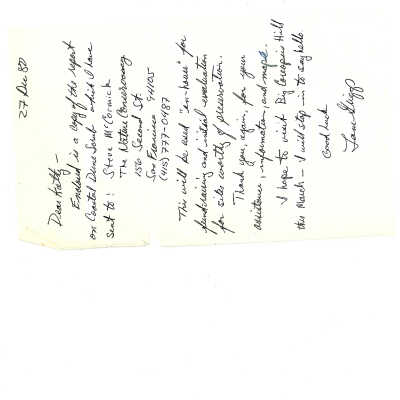 27 Dec 80
Dear Kathy -
Enclosed is a copy of the report
on Coastal Dune Scrub which I have
sent to: Steve McCormick
The Nature Conservancy
156 Second St.
San Francisco 94105
(415) 777-0487
This will be used "in-house" for
fundraising and initial evaluation
for sites worthy of preservation.
Thank you, again, for your
assistance, information, and maps.
I hope to visit Big Coreopsis Hill
this March - I will stop in to say hello
Good luck